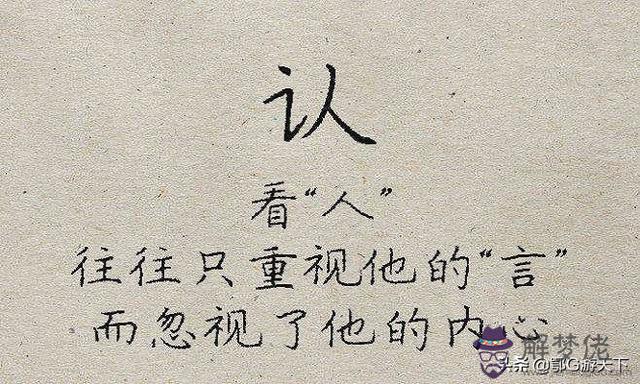 认
看“人”
往往只重视他的“言”
而忽视了他的内心
解梦佬
头条@郭G游天下